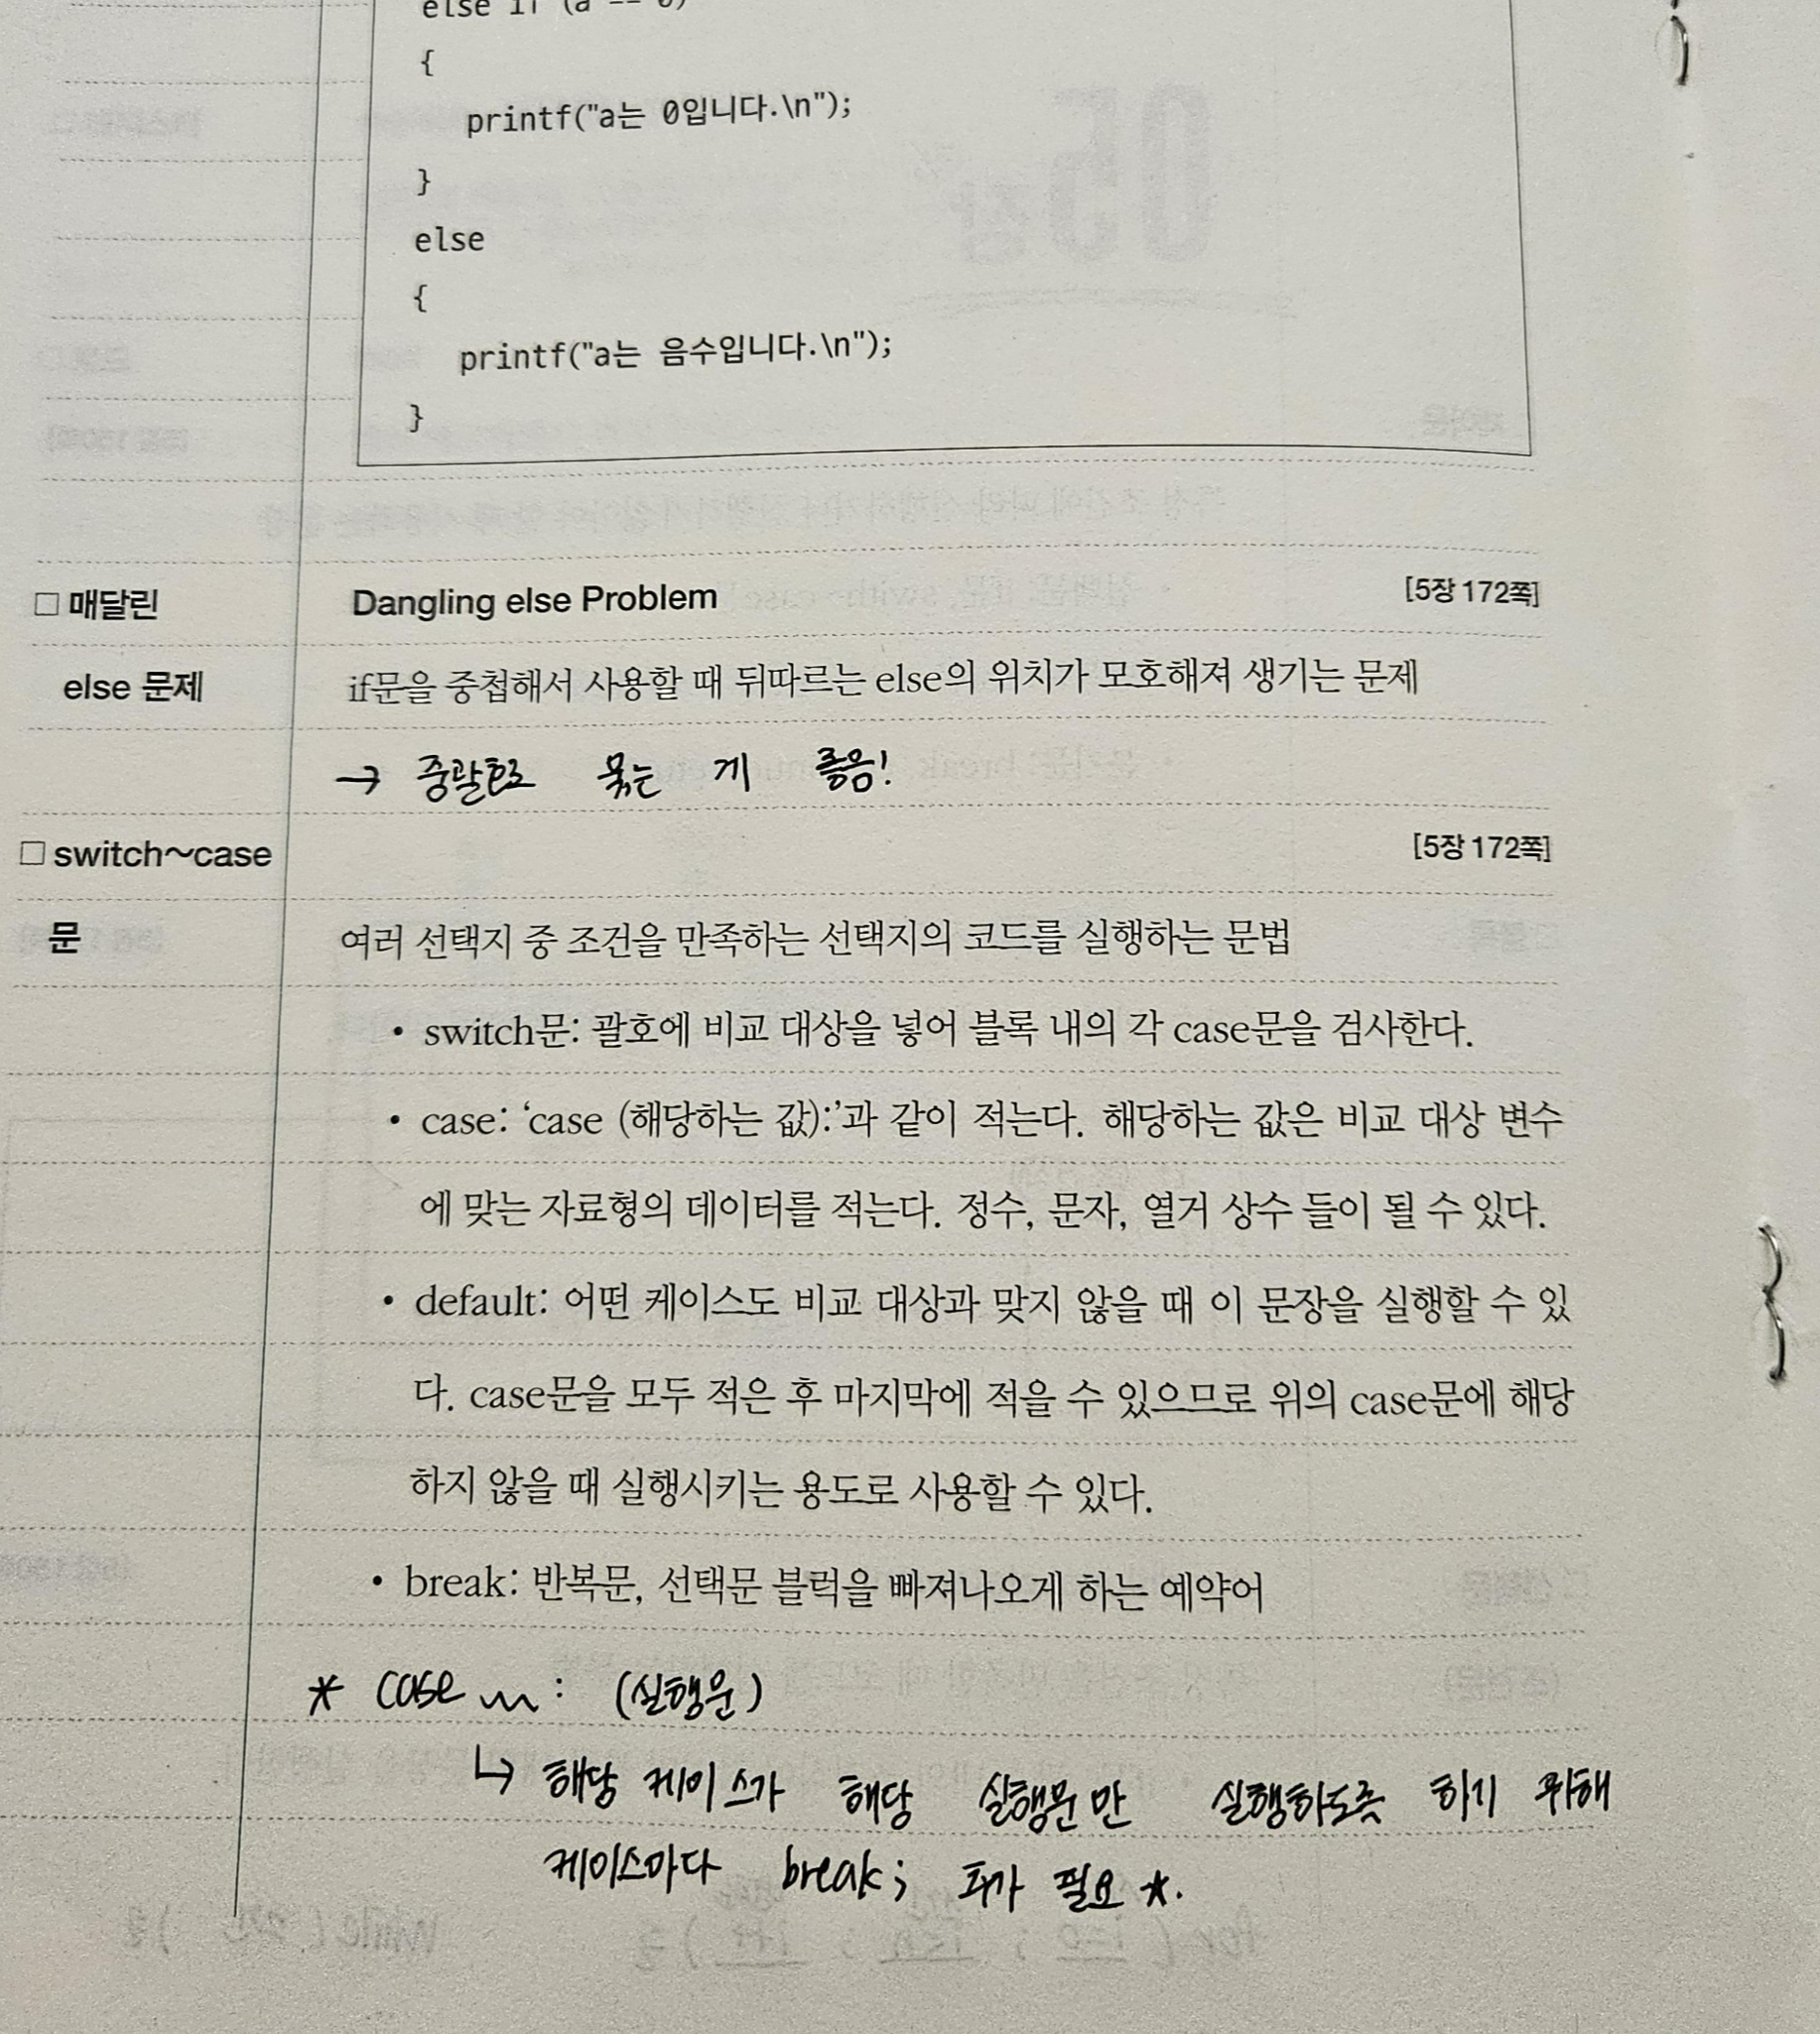 else if (a == 0)
{
printf("a는 0입니다.\n");
}
else
{
printf("a는 음수입니다.\n");
}
□ 매달린 Dangling else Problem [5장 172쪽]
else 문제 if문을 중첩해서 사용할 때 뒤따르는 else의 위치가 모호해져 생기는 문제
→ 중괄호로 묶는 게 좋음!
□ switch~case [5장 172쪽]
문 여러 선택지 중 조건을 만족하는 선택지의 코드를 실행하는 문법
• switch문: 괄호에 비교 대상을 넣어 블록 내의 각 case문을 검사한다.
• case: ‘case (해당하는 값):’과 같이 적는다. 해당하는 값은 비교 대상 변수
에 맞는 자료형의 데이터를 적는다. 정수, 문자, 열거 상수 들이 될 수 있다.
• default: 어떤 케이스도 비교 대상과 맞지 않을 때 이 문장을 실행할 수 있
다. case문을 모두 적은 후 마지막에 적을 수 있으므로 위의 case문에 해당
하지 않을 때 실행시키는 용도로 사용할 수 있다.
• break: 반복문, 선택문 블럭을 빠져나오게 하는 예약어
* case ~~ : (실행문)
↳ 해당 케이스가 해당 실행문만 실행하도록 하기 위해
케이스마다 break; 추가 필요 *.